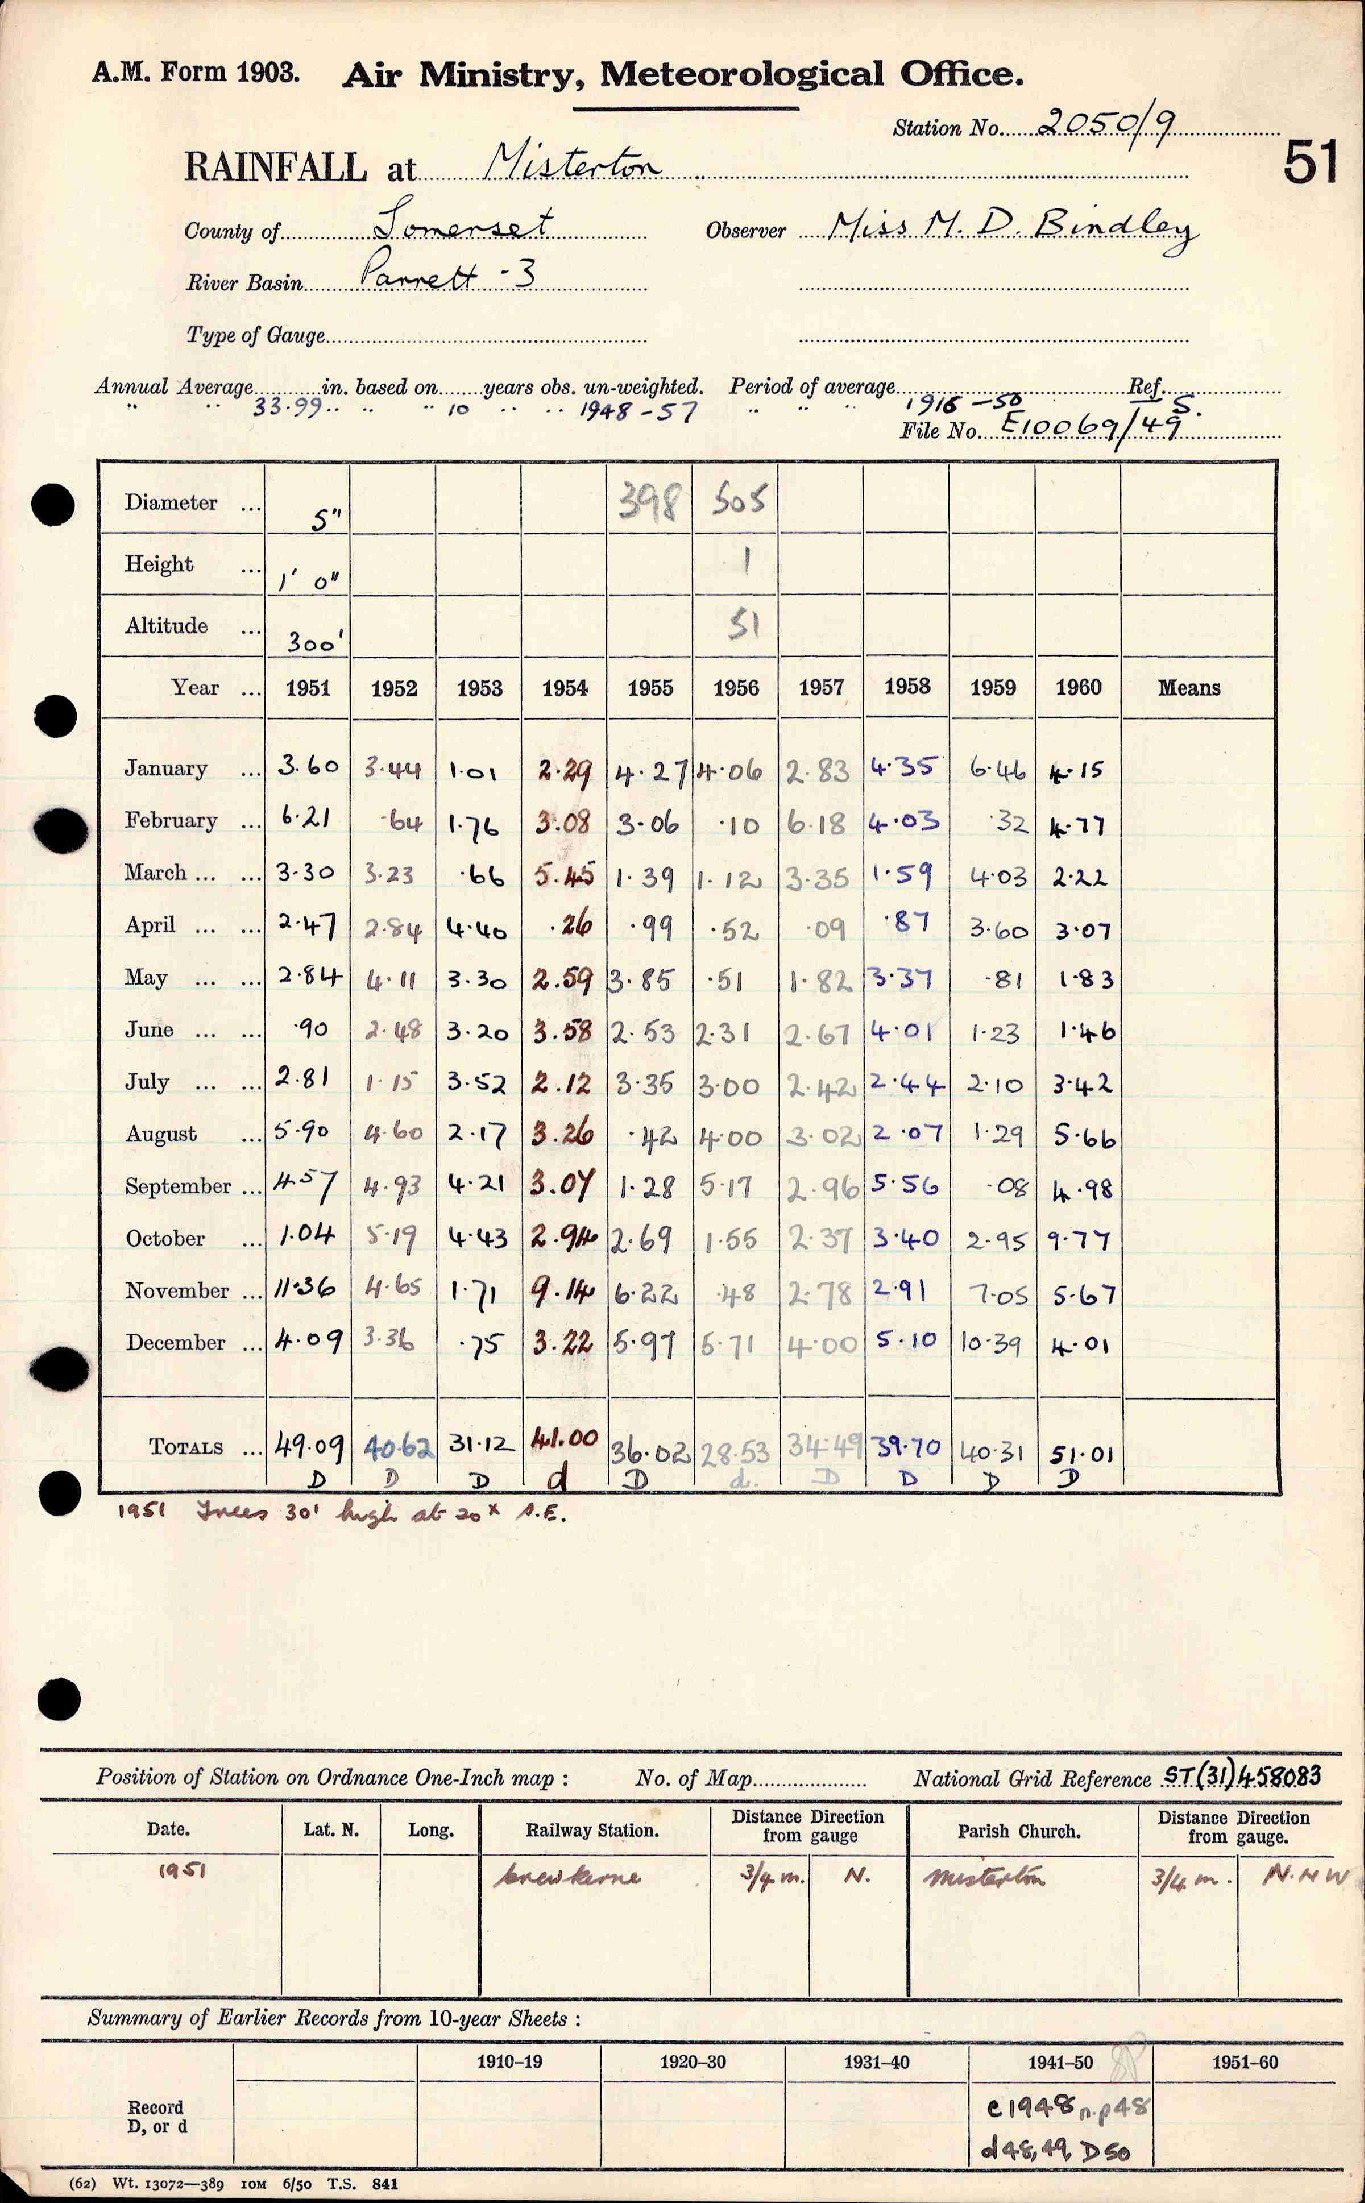 A.M. Form 1903. Air Ministry, Meteorological Office.
Station No. 2050/9
51
RAINFALL at Misterton
County of Somerset Observer Miss M. D. Bindley
River Basin Parrett - 3
Type of Gauge
Annual Average in. based on years obs. un-weighted. Period of average Ref.
" " 33.99 " " " 10 " " 1948-57 " " " 1916-50 S.
File No. E10069/49
Diameter ... 5" 398 505
Height ... 1' 0" 1
Altitude ... 300' 51
Year ... 1951 1952 1953 1954 1955 1956 1957 1958 1959 1960 Means
January ... 3.60 3.44 1.01 2.29 4.27 4.06 2.83 4.35 6.46 4.15
February ... 6.21 .64 1.76 3.08 3.06 .10 6.18 4.03 .32 4.77
March ... ... 3.30 3.23 .66 5.45 1.39 1.12 3.35 1.59 4.03 2.22
April ... ... 2.47 2.84 4.40 .26 .99 .52 .09 .87 3.60 3.07
May ... ... 2.84 4.11 3.30 2.59 3.85 .51 1.82 3.37 .81 1.83
June ... ... .90 2.48 3.20 3.58 2.53 2.31 2.67 4.01 1.23 1.46
July ... ... 2.81 1.15 3.52 2.12 3.35 3.00 2.42 2.44 2.10 3.42
August ... 5.90 4.60 2.17 3.26 .42 4.00 3.02 2.07 1.29 5.66
September ... 4.57 4.93 4.21 3.07 1.28 5.17 2.96 5.56 .08 4.98
October ... 1.04 5.19 4.43 2.94 2.69 1.55 2.37 3.40 2.95 9.77
November ... 11.36 4.65 1.71 9.14 6.22 .48 2.78 2.91 7.05 5.67
December ... 4.09 3.36 .75 3.22 5.97 5.71 4.00 5.10 10.39 4.01
TOTALS ... 49.09 40.62 31.12 41.00 36.02 28.53 34.49 39.70 40.31 51.01
D D D d D d. D D D D
1951 Trees 30' high at 20x S.E.
Position of Station on Ordnance One-Inch map : No. of Map National Grid Reference ST(31)458083
Date. Lat. N. Long. Railway Station. Distance from gauge Direction Parish Church. Distance from gauge. Direction
1951 Crewkerne 3/4 m. N. Misterton 3/4 m. N.N.W
Summary of Earlier Records from 10-year Sheets :
1910–19 1920–30 1931–40 1941–50 1951–60
Record D, or d
c1948 n.p48
d48,49, D50
(62) Wt. 13072—389 10M 6/50 T.S. 841